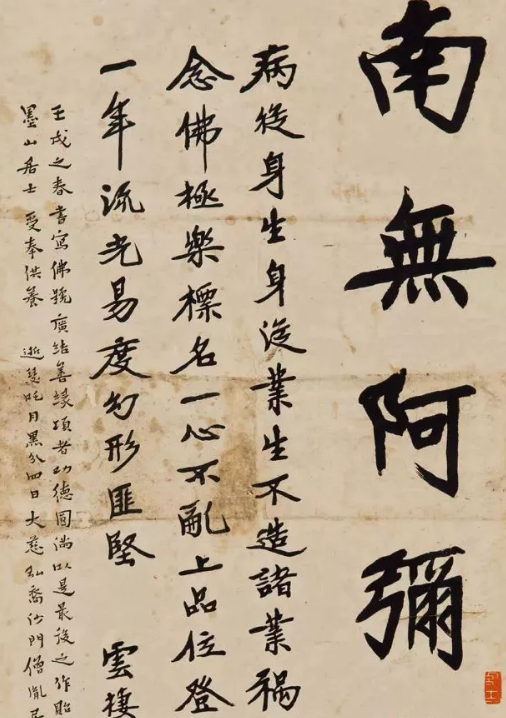 南無阿彌
病從身生身從業生不造諸業禍
念佛極樂標名一心不亂上品位登
一年流光易度幻形匪堅　雲棲
壬戌之春書寫佛號廣結善緣頃者功德圓滿以是最後之作貽
墨山居士受奉供養　逝多吒月黑分四日大慈弘裔沙門僧胤